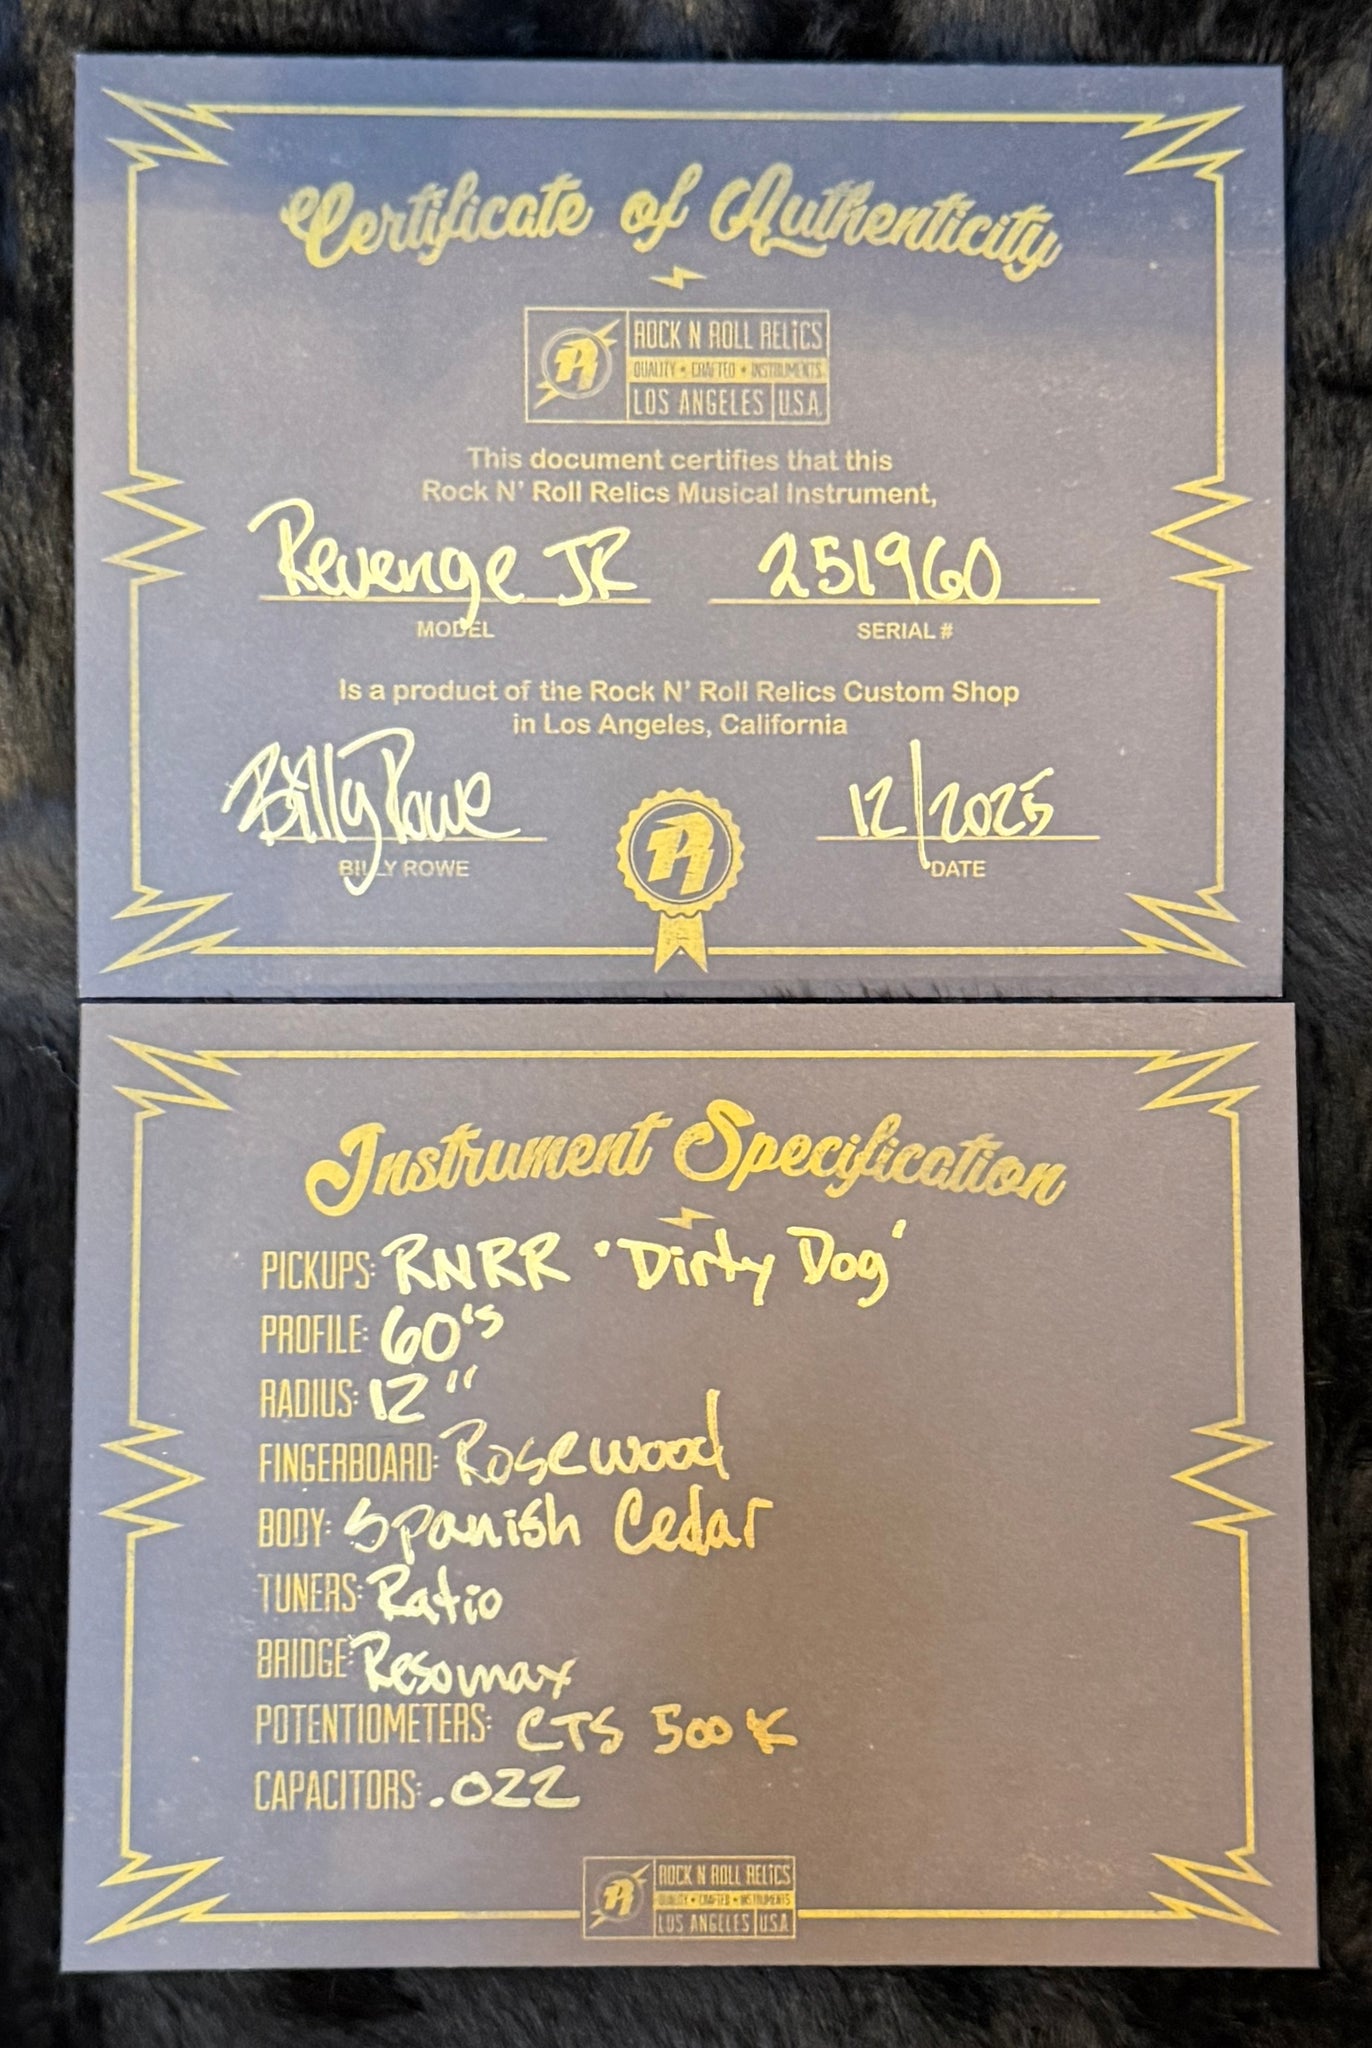 Certificate of Authenticity
R
ROCK N ROLL RELICS
QUALITY • CRAFTED • INSTRUMENTS
LOS ANGELES U.S.A.
This document certifies that this
Rock N' Roll Relics Musical Instrument,
Revenge JR 251960
MODEL SERIAL #
Is a product of the Rock N' Roll Relics Custom Shop
in Los Angeles, California
Billy Rowe 12/2025
BILLY ROWE DATE
R
Instrument Specification
PICKUPS: RNRR 'Dirty Dog'
PROFILE: 60's
RADIUS: 12"
FINGERBOARD: Rosewood
BODY: Spanish Cedar
TUNERS: Ratio
BRIDGE: Resomax
POTENTIOMETERS: CTS 500K
CAPACITORS: .022
R
ROCK N ROLL RELICS
QUALITY • CRAFTED • INSTRUMENTS
LOS ANGELES USA